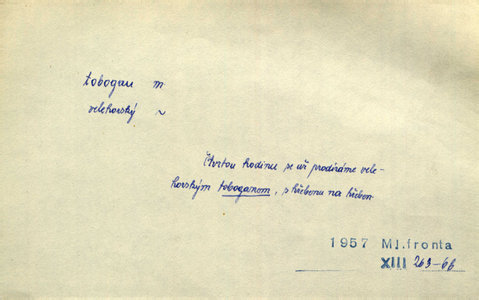 tobogan m
velehorský ~
Čtvrtou hodinu se už prodíráme vele-
horským toboganem, s hřebenu na hřeben
1957 Ml.fronta
XIII 263-66